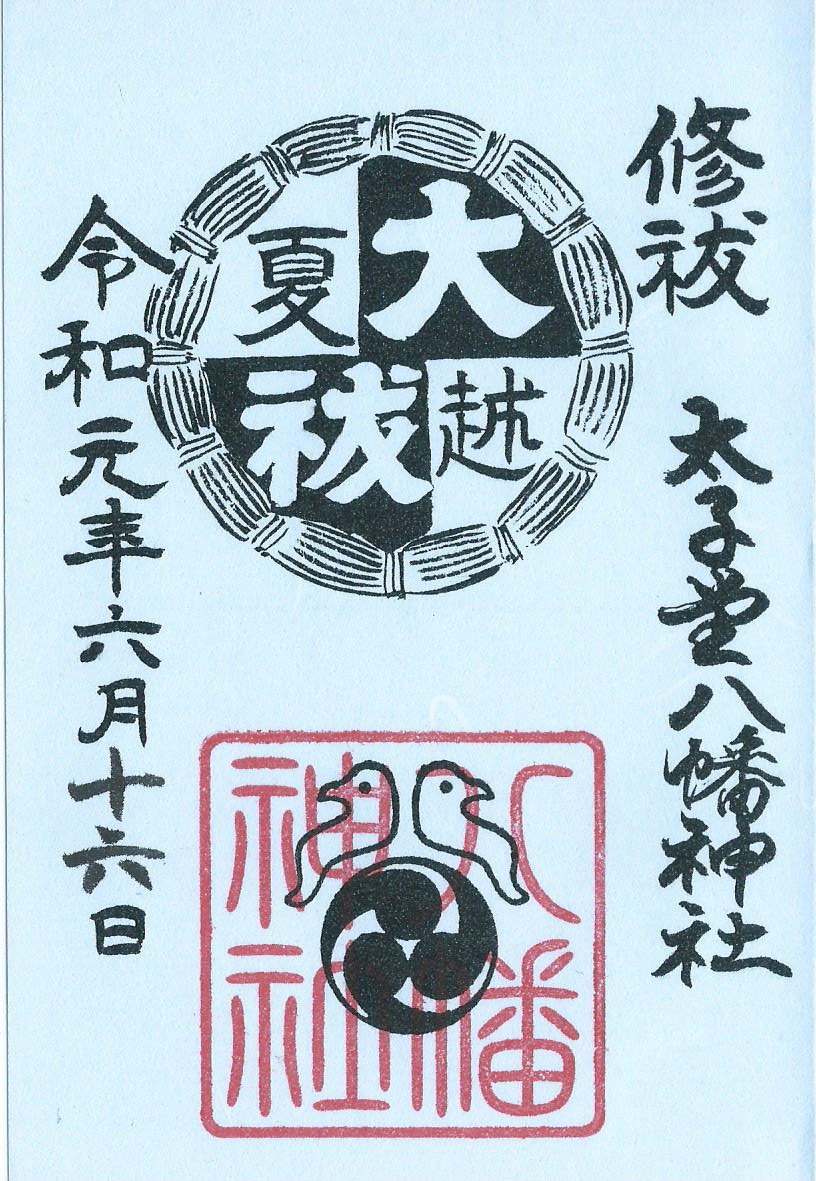 修祓
太子堂八幡神社
夏越
大祓
令和元年六月十六日
八幡
神社